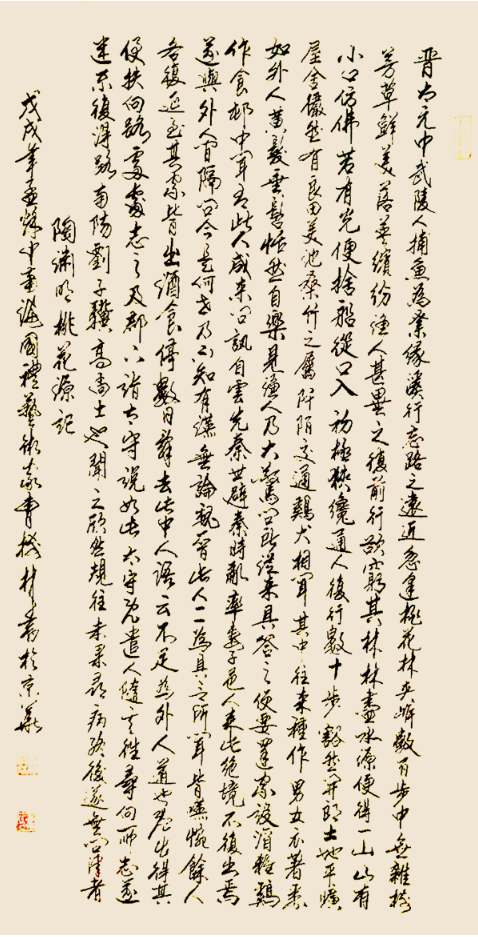 晋太元中武陵人捕魚為業緣溪行忘路之遠近忽逢桃花林夾岸數百步中無雜樹
芳草鮮美落英繽紛漁人甚異之復前行欲窮其林林盡水源便得一山山有
小口仿佛若有光便捨船從口入初極狹纔通人復行數十步豁然開朗土地平曠
屋舍儼然有良田美池桑竹之屬阡陌交通鷄犬相聞其中往来種作男女衣著悉
如外人黄髮垂髫怡然自樂見漁人乃大驚問所從来具答之便要還家設酒殺鷄
作食邨中聞有此人咸来問訊自雲先秦世避秦時亂率妻子邑人来此絶境不復出焉
遂與外人間隔問今是何世乃不知有漢無論魏晋此人一一為具言所聞皆嘆惋餘人
各復延至其家皆出酒食停數日辭去此中人語云不足為外人道也既出得其
便扶向路處處志之及郡下詣太守説如此太守即遣人隨其往尋向所志遂
迷不復得路南陽劉子驥高尚士也聞之欣然規往未果尋病終後遂無問津者
陶渊明桃花源記
戊戌年中國禮藝術家林書於京華